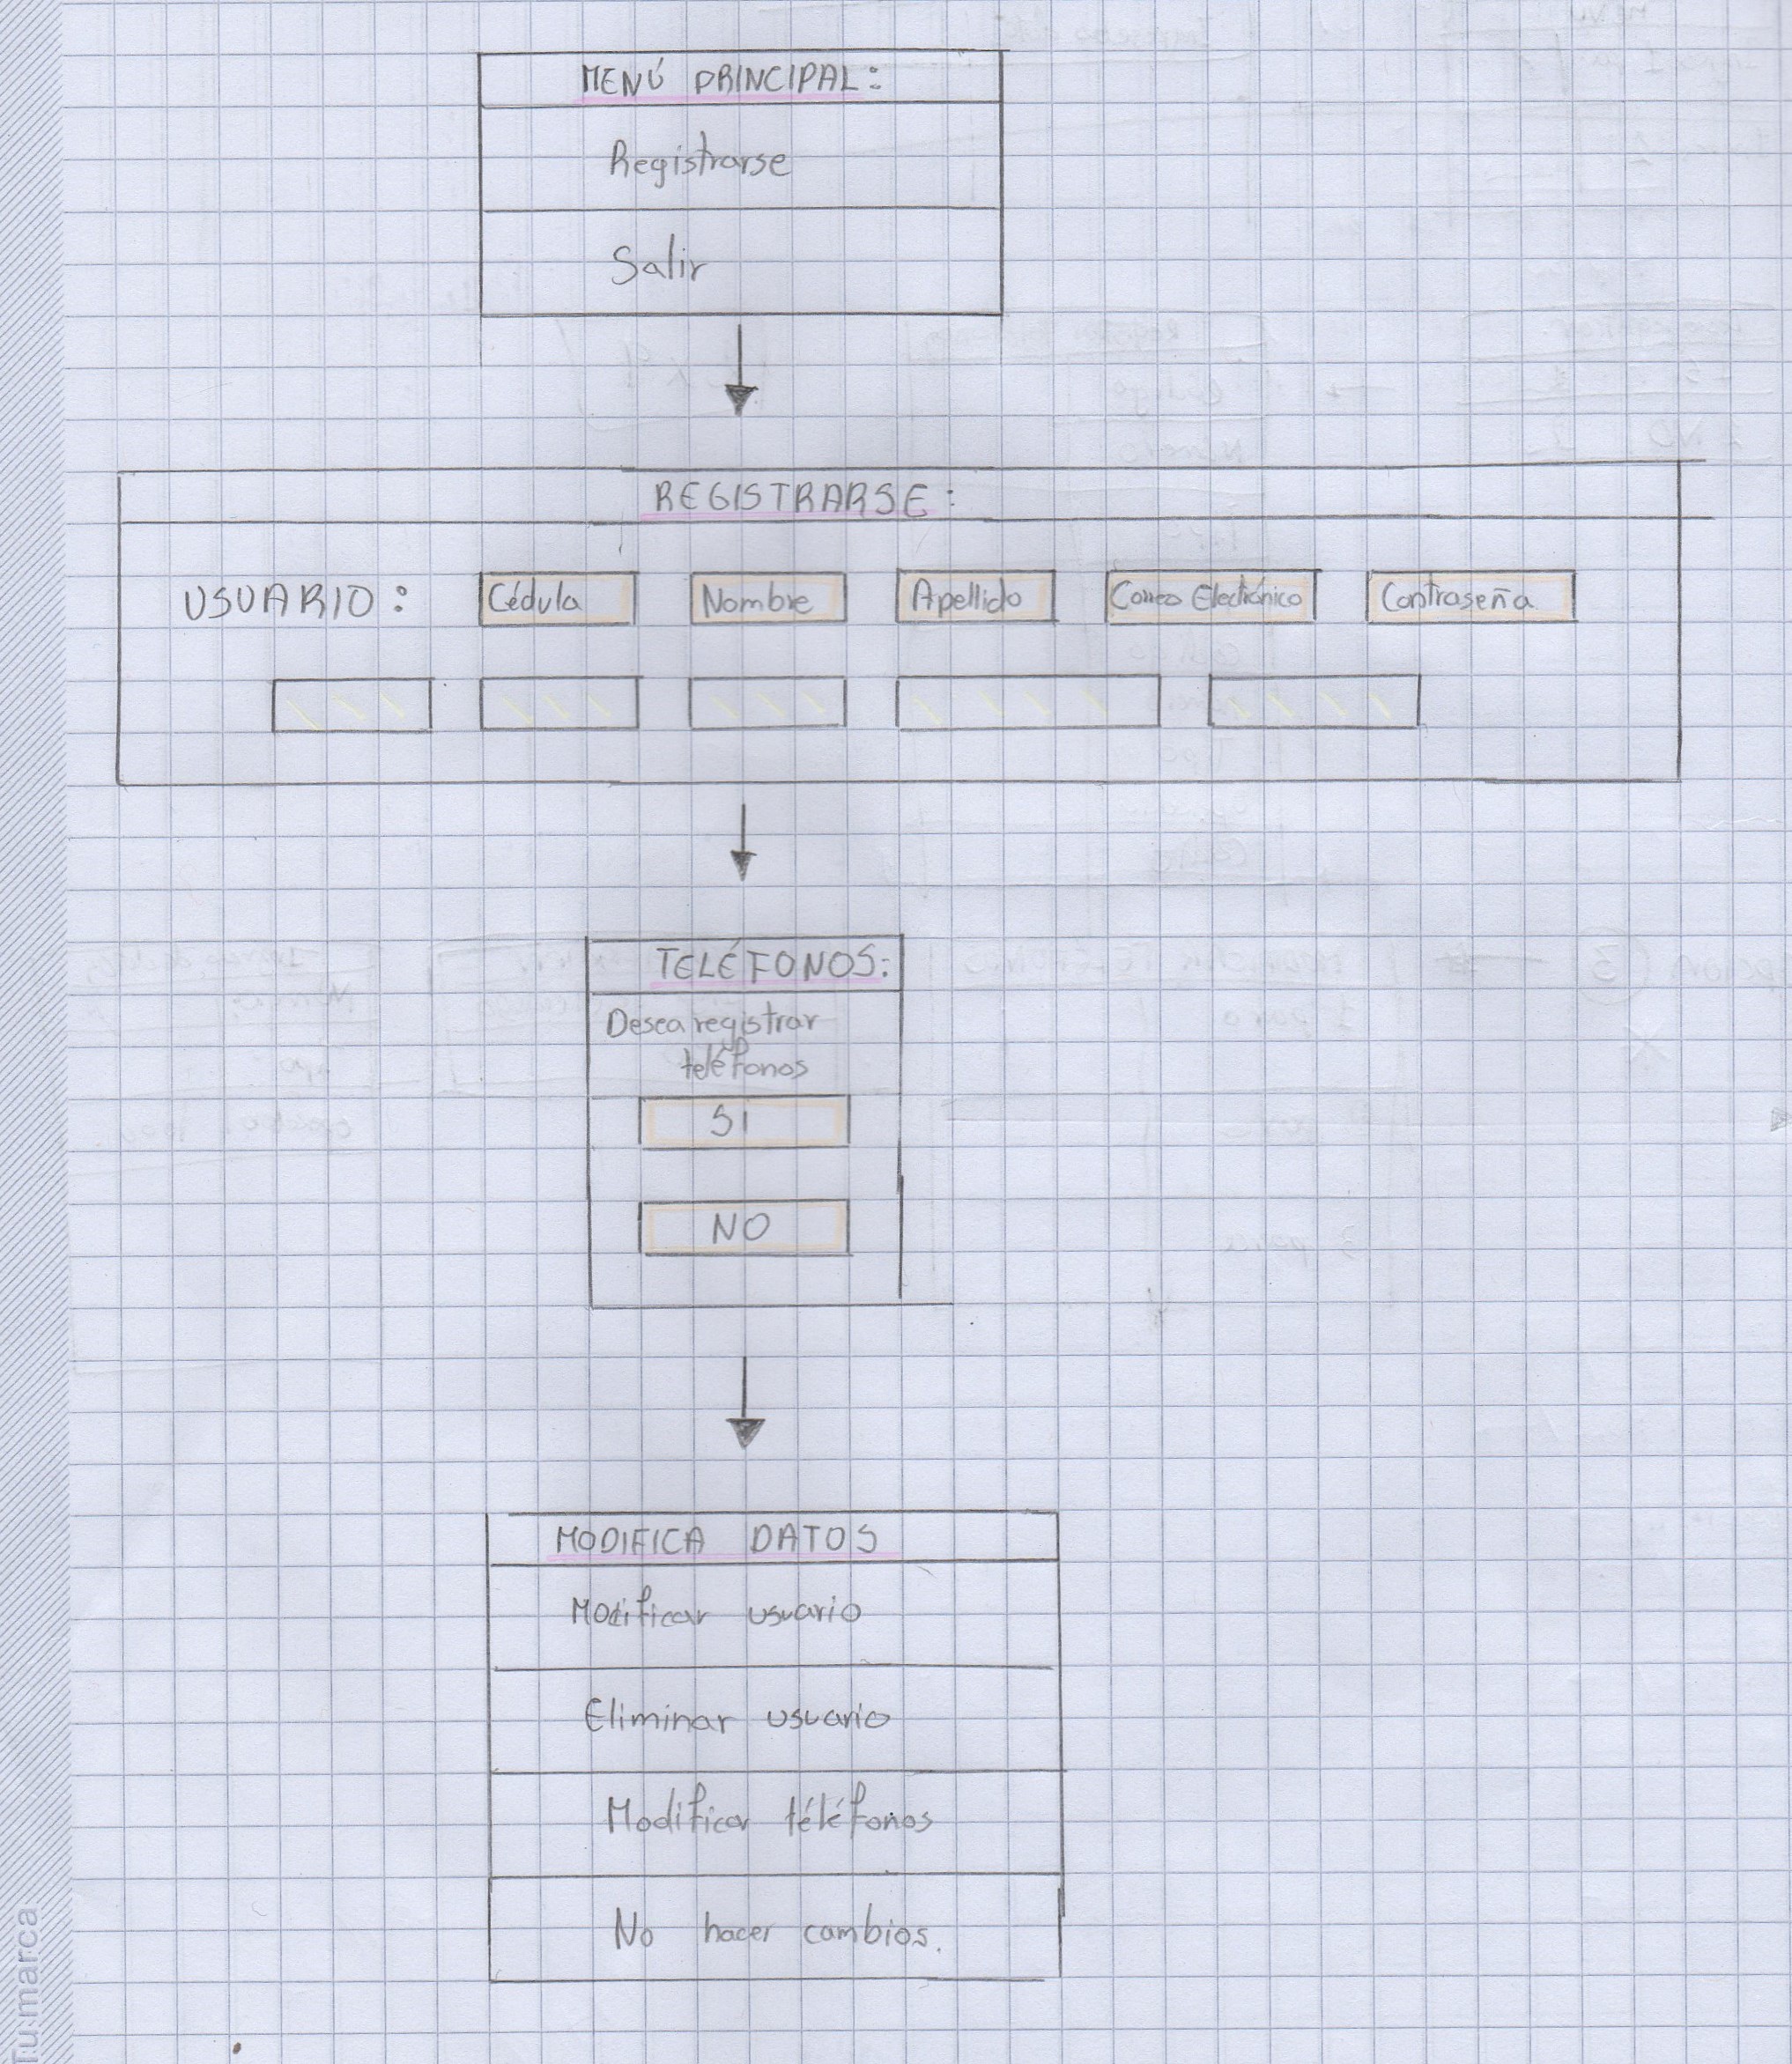 MENÚ PRINCIPAL:
Registrarse
Salir
REGISTRARSE:
USUARIO: Cédula Nombre Apellido Correo Electrónico Contraseña
TELÉFONOS:
Desea registrar
teléfonos
SI
NO
MODIFICA DATOS
Modificar usuario
Eliminar usuario
Modificar téléfonos
No hacer cambios.
Tu marca